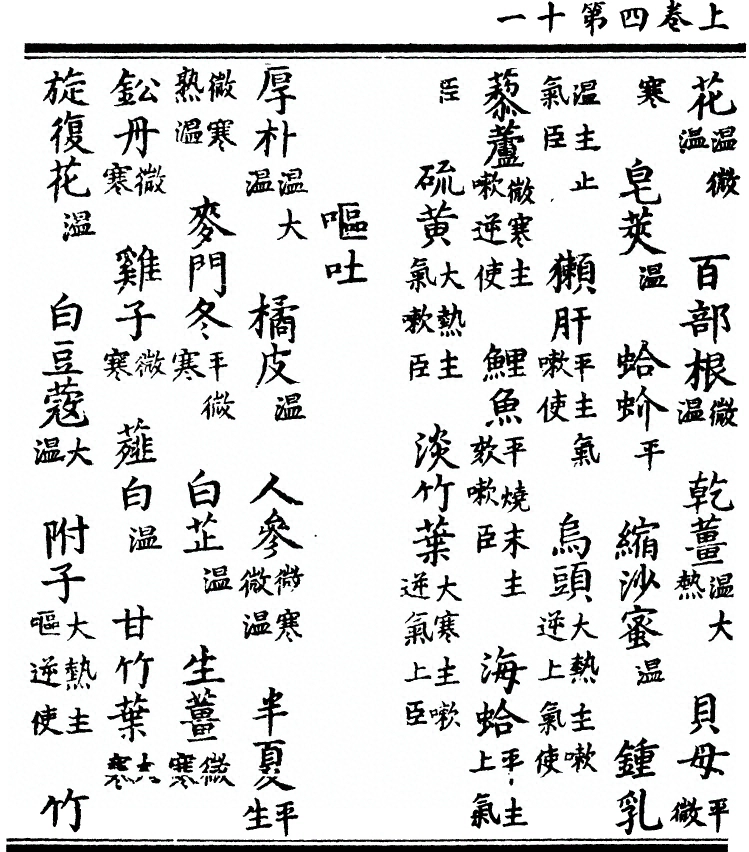 上卷四第十一
花溫微溫　百部根微溫　乾薑溫大熱　貝母平微
寒　皂莢溫　蛤蚧平　縮沙蜜溫　鍾乳
溫主止氣臣　獺肝平主氣嗽使　烏頭大熱主嗽逆上氣使
藜蘆微寒主嗽逆使　鯉魚平燒末主欬嗽臣　海蛤平主上氣
臣　硫黃大熱主氣嗽臣　淡竹葉大寒主嗽逆氣上臣
嘔吐
厚朴溫大溫　橘皮溫　人參微寒微溫　半夏平生
微寒熟溫　麥門冬平微寒　白芷溫　生薑微寒
鈆丹微寒　雞子微寒　薤白溫　甘竹葉大寒
旋復花溫　白豆蔻大溫　附子大熱主嘔逆使　竹